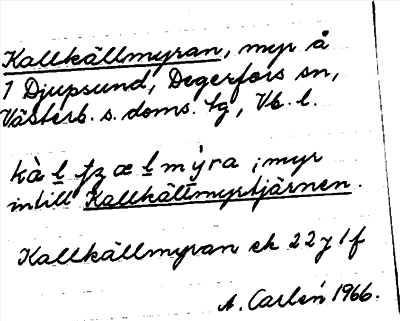 Kallkällmyran, myr å
1 Djupsund, Degerfors sn,
Västerb. s. doms. tg, Vb. l.
intill Kallkällmyrtjärnen.
Kallkällmyran ek 22 y 1 f
A. Carlén 1966.